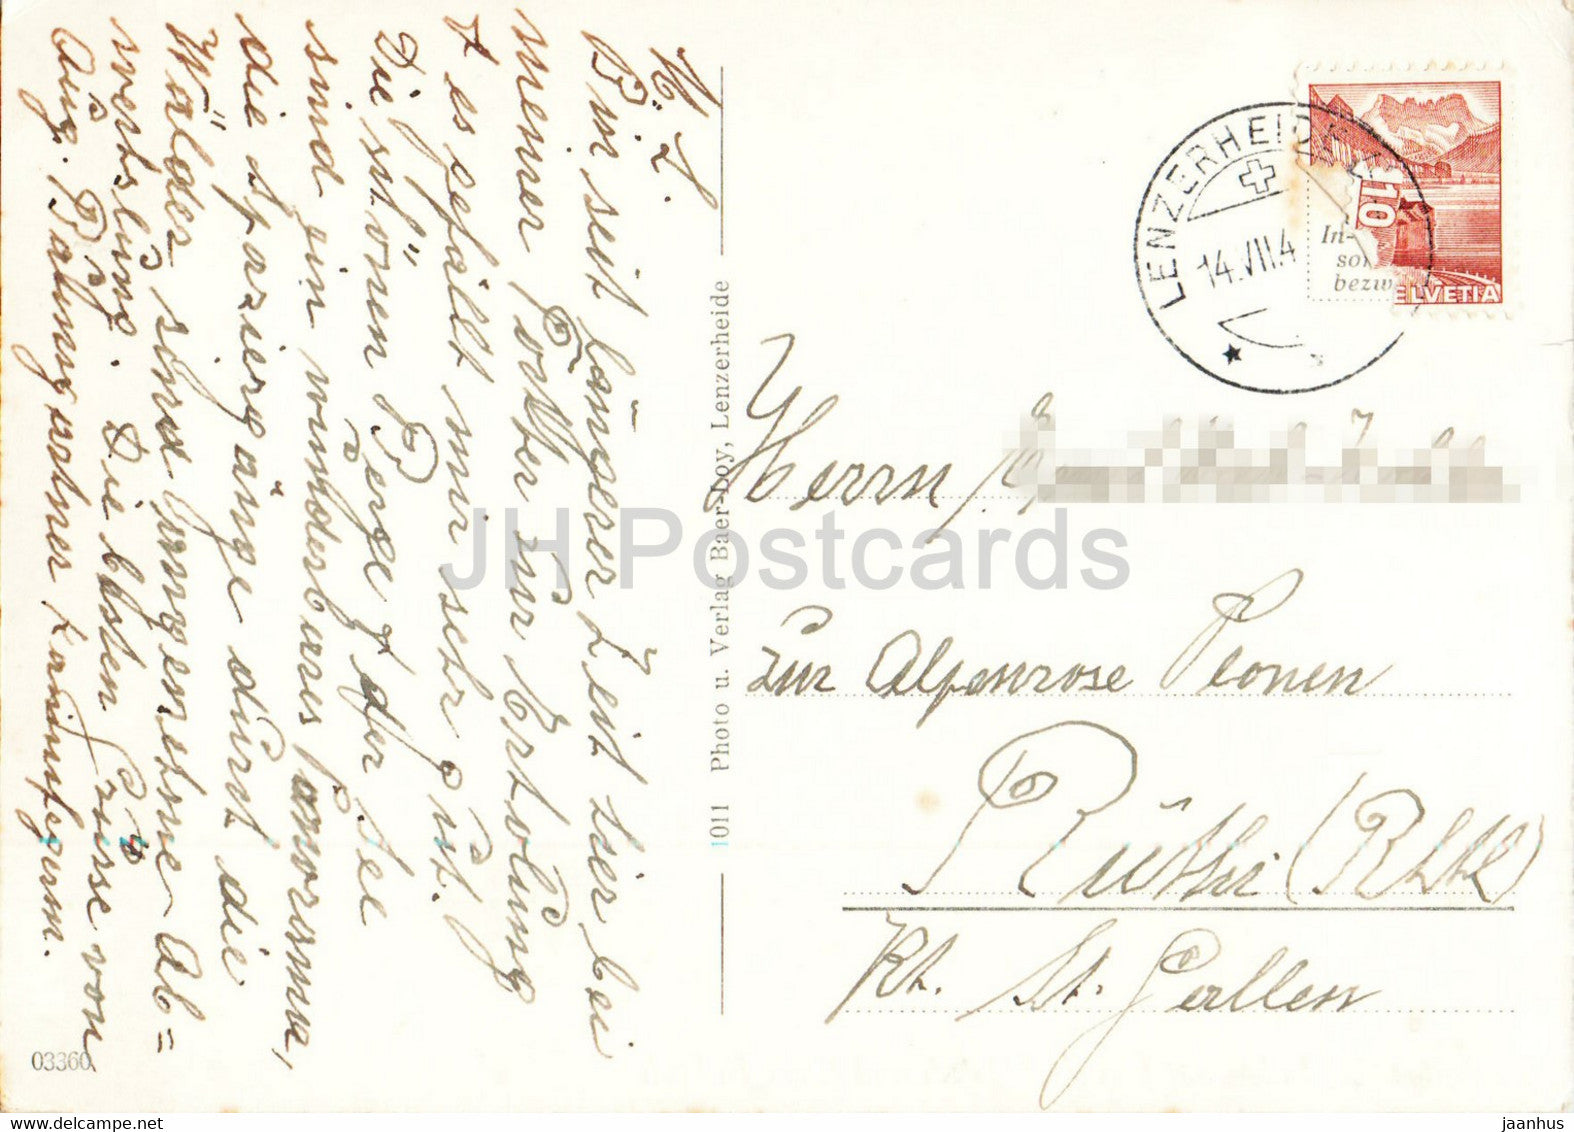 M. L.
Bin seit länger Zeit hier bei
meiner Totter zur Erholung
& es gefällt mir sehr gut.
Die schönen Berge & der See
sind ein wunderbares Panorama,
die Spaziergänge durch die
Wälder sind angenehme Ab=
wechslung. Die besten Grüsse von
Aug. Baumgartner
03360
1011 Photo u. Verlag Baer-Loy, Lenzerheide
LENZERHEIDE
14.VII.4
10
HELVETIA
In-
bezw
Herrn
zur Alpenrose Plonen
Rüthi (Rhtl)
Kt. St. Gallen
JH Postcards
Delcampe.net
jaanhus